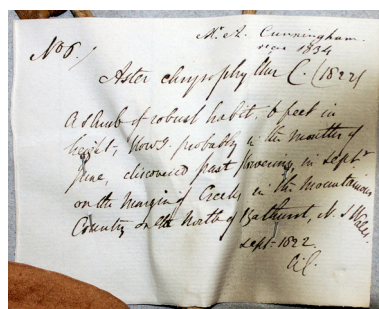 Mr. A. Cunningham.
1834
No 6./
Aster chrysophyllus C. (1822)
A shrub of robust habit. 6 feet in
height, flowg. probably in the months of
June, discovered past flowering in Septr
on the margin of Creeks in the mountainous
Country on the North of Bathurst, N. S Wales.
Septr 1822.
A.C.